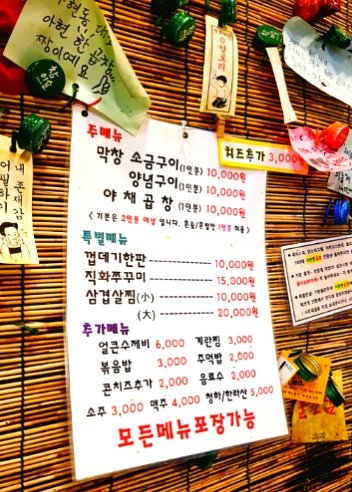 아현동
아현 한곱창
짱이예요
주메뉴
막창 소금구이(1인분) 10,000원
양념구이(1인분) 10,000원
야채곱창(1인분) 10,000원
치즈추가 3,000
특별메뉴
껍데기한판 10,000원
직화쭈꾸미 15,000원
삼겹살찜(小) 10,000원
(大) 20,000원
추가메뉴
얼큰수제비 6,000 계란찜 3,000
볶음밥 3,000 주먹밥 2,000
콘치즈추가 2,000 음료수 2,000
소주 3,000 맥주 4,000 청하/한라산 5,000
모든메뉴포장가능
내 존재감